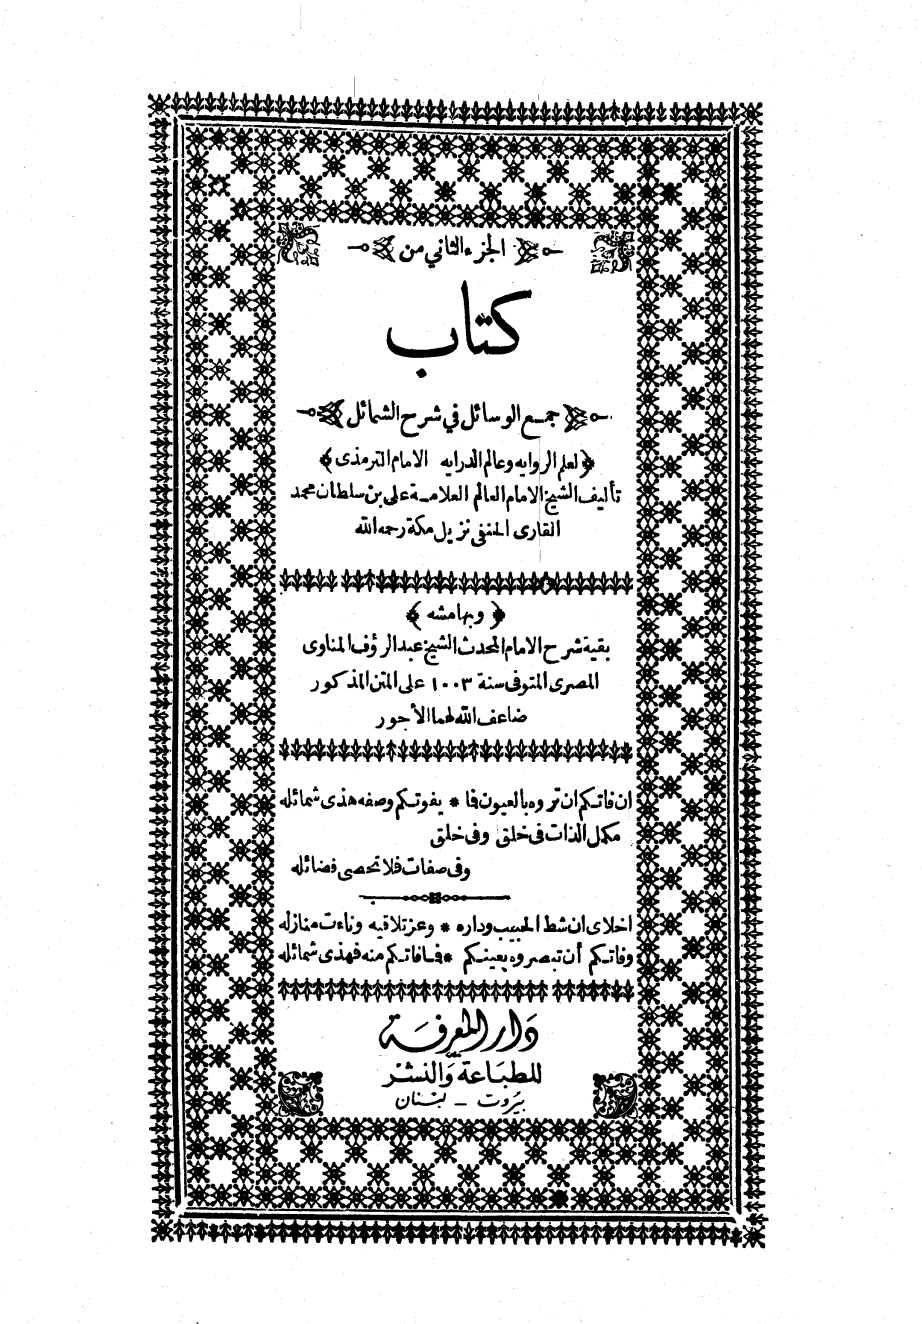 الجزء الثاني من
كتاب
جمع الوسائل في شرح الشمائل
﴿لعلم الروايه وعالم الدرايه الامام الترمذى﴾
تأليف الشيخ الامام العالم العلامة على بن سلطان محمد
القارى الحنفى نزيل مكة رحمه الله
﴿وبهامشه﴾
بقية شرح الامام المحدث الشيخ عبد الرؤف المناوى
المصرى المتوفى سنة ١٠٠٣ على المتن المذكور
ضاعف الله لهما الأجور
ان فاتكم ان تروه بالعيون فما * يفوتكم وصفه هذى شمائله
مكمل الذات فى خلق وفى خلق
وفى صفات فلا تحصى فضائله
اخلاى ان شط الحبيب وداره * وعز تلاقيه وناءت منازله
وفاتكم أن تبصروه بعينكم * فما فاتكم منه فهذى شمائله
دار المعرفة
للطباعة والنشر
بيروت - لبنان